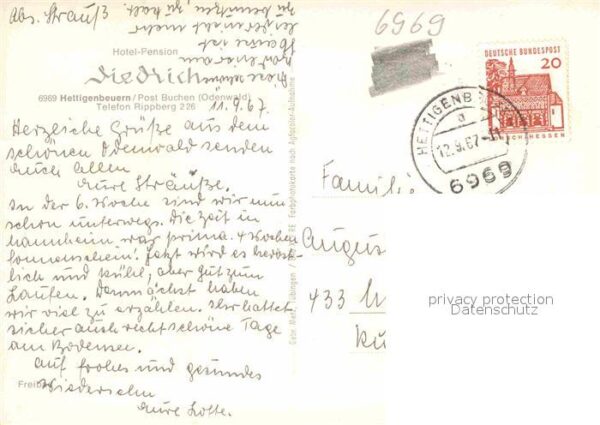 Abs. Strauß
Hotel-Pension
Diedrich
6969 Hettigenbeuern / Post Buchen (Odenwald)
Telefon Rippberg 226
11.9.67.
Herzliche Grüße aus dem
schönen Odenwald senden
Euch allen
Eure Sträuße.
In der 6. Woche sind wir nun
schon unterwegs. Die Zeit in
Mannheim war prima. 4 Wochen
Sonnenschein! Jetzt wird es herbst-
lich und kühl, aber gut zum
Laufen. Demnächst haben
wir viel zu erzählen. Ihr hattet
sicher auch recht schöne Tage
am Bodensee.
Auf frohes und gesundes
Wiedersehn
Eure Lotte.
6969
DEUTSCHE BUNDESPOST
20
HETTIGENB
a
12.9.67-11
6969
Famili
Augus
433 M
privacy protection
Datenschutz